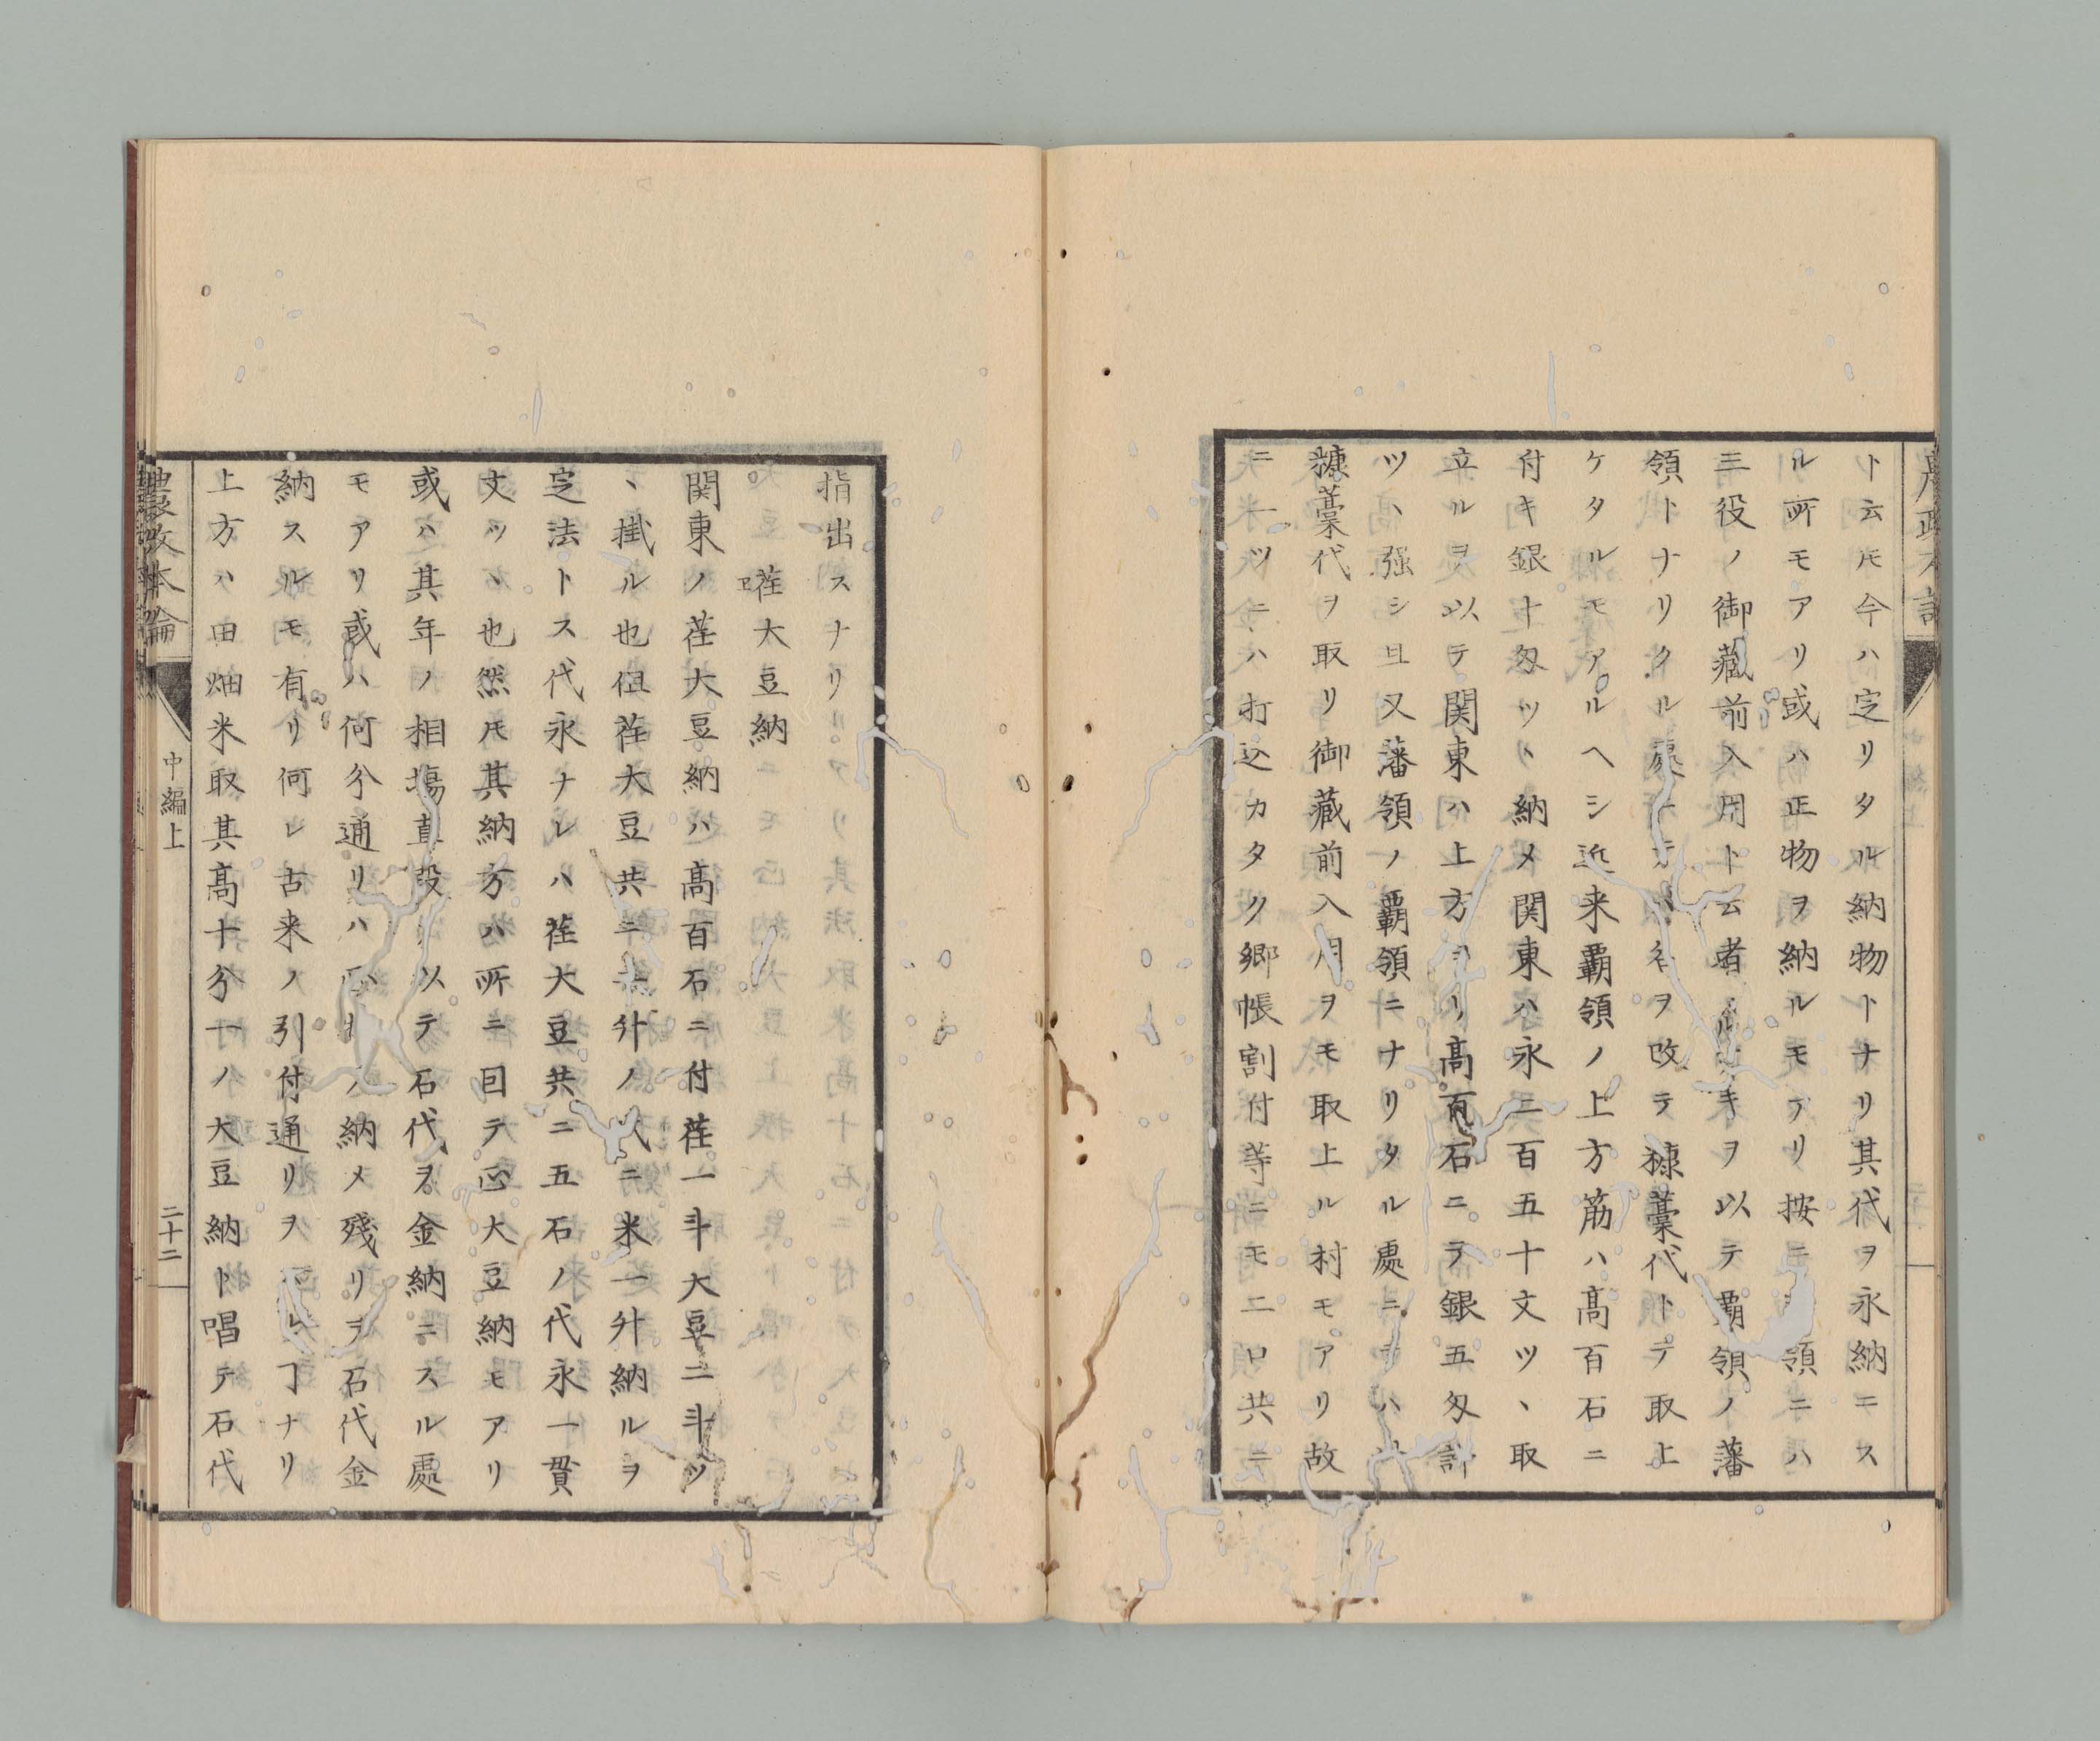 ト云𪜈今ハ定リタル納物トナリ其代ヲ永納ニス
ル所モアリ或ハ正物ヲ納ルモアリ按ニ領ニハ
三役ノ御藏前入用ト云者ヲ以テ覇領ノ藩
領トナリタル處名ヲ改テ糠藁代トテ取上
ケタルモアルヘシ近来覇領ノ上方筋ハ髙百石ニ
付キ銀十匁ツヽ納メ関東ハ永三百五十文ツヽ取
立ルヲ以テ関東ハ上方ヨリ髙百石ニテ銀五匁計
ツヽ强シ且又藩領ノ覇領ニナリタル處ニテハ
糠藁代ヲ取リ御藏前入用ヲモ取上ル村モアリ故
ニ一ツニハ打込カタク郷帳割付等ニモ二口共ニ
指出スナリ
荏大豆納
関東ノ荏大豆納ハ髙百石ニ付荏一斗大豆二斗ツ
ヽ掛ル也但荏大豆共ニ升ノ代ニ米一升納ルヲ
定法トス代永ナレハ荏大豆共ニ五石ノ代永一貫
文ツヽ也然𪜈其納方ハ所ニ囙テ正大豆納モアリ
或ハ其年ノ相塲直段以テ石代ヲ金納ニスル處
モアリ或ハ何分通リハ納メ殘リヲ石代金
納スルモ有リ何レ古来ノ引付通リヲナリ
上方ハ田畑米取其髙十分一ノ大豆納ト唱テ石代
農政本論
中編上
二十二